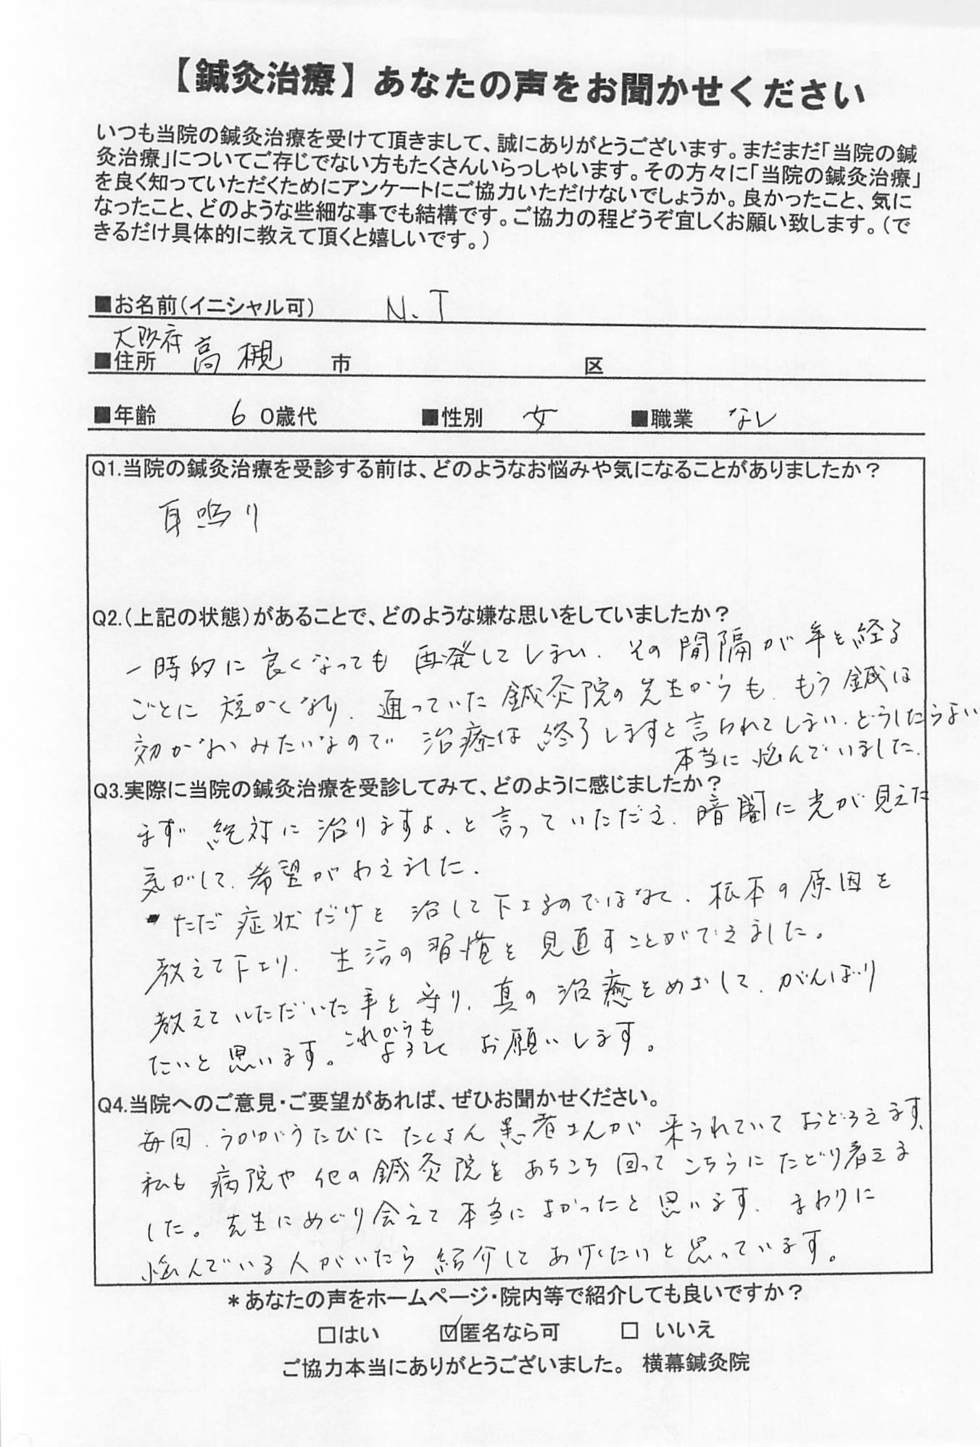 【鍼灸治療】あなたの声をお聞かせください
いつも当院の鍼灸治療を受けて頂きまして、誠にありがとうございます。まだまだ「当院の鍼
灸治療」についてご存じでない方もたくさんいらっしゃいます。その方々に「当院の鍼灸治療」
を良く知っていただくためにアンケートにご協力いただけないでしょうか。良かったこと、気に
なったこと、どのような些細な事でも結構です。ご協力の程どうぞ宜しくお願い致します。(で
きるだけ具体的に教えて頂くと嬉しいです。)
■お名前(イニシャル可) N.T
大阪府
■住所 高槻 市 区
■年齢 60歳代 ■性別 女 ■職業 なし
Q1.当院の鍼灸治療を受診する前は、どのようなお悩みや気になることがありましたか?
耳鳴り
Q2.(上記の状態)があることで、どのような嫌な思いをしていましたか?
一時的に良くなっても再発してしまい、その間隔が年を経る
ごとに短かくなり、通っていた鍼灸院の先生からも、もう鍼は
効かないみたいなので治療は終了しますと言われてしまい、どうしたらよいか
本当に悩んでいました。
Q3.実際に当院の鍼灸治療を受診してみて、どのように感じましたか?
まず絶対に治りますよ、と言っていただき、暗闇に光が見えた
気がして、希望がわきました。
・ただ症状だけを治して下さるのではなく、根本の原因を
教えて下さり、生活の習慣を見直すことができました。
教えていただいた事を守り、真の治癒をめざして、がんばり
たいと思います。これからもよろしくお願いします。
Q4.当院へのご意見・ご要望があれば、ぜひお聞かせください。
毎回、うかがうたびにたくさん患者さんが来られていておどろきます。
私も病院や他の鍼灸院をあちこち回ってこちらにたどり着きま
した。先生にめぐり会えて本当によかったと思います。まわりに
悩んでいる人がいたら紹介してあげたいと思っています。
*あなたの声をホームページ・院内等で紹介しても良いですか?
□はい ☑匿名なら可 □ いいえ
ご協力本当にありがとうございました。 横幕鍼灸院